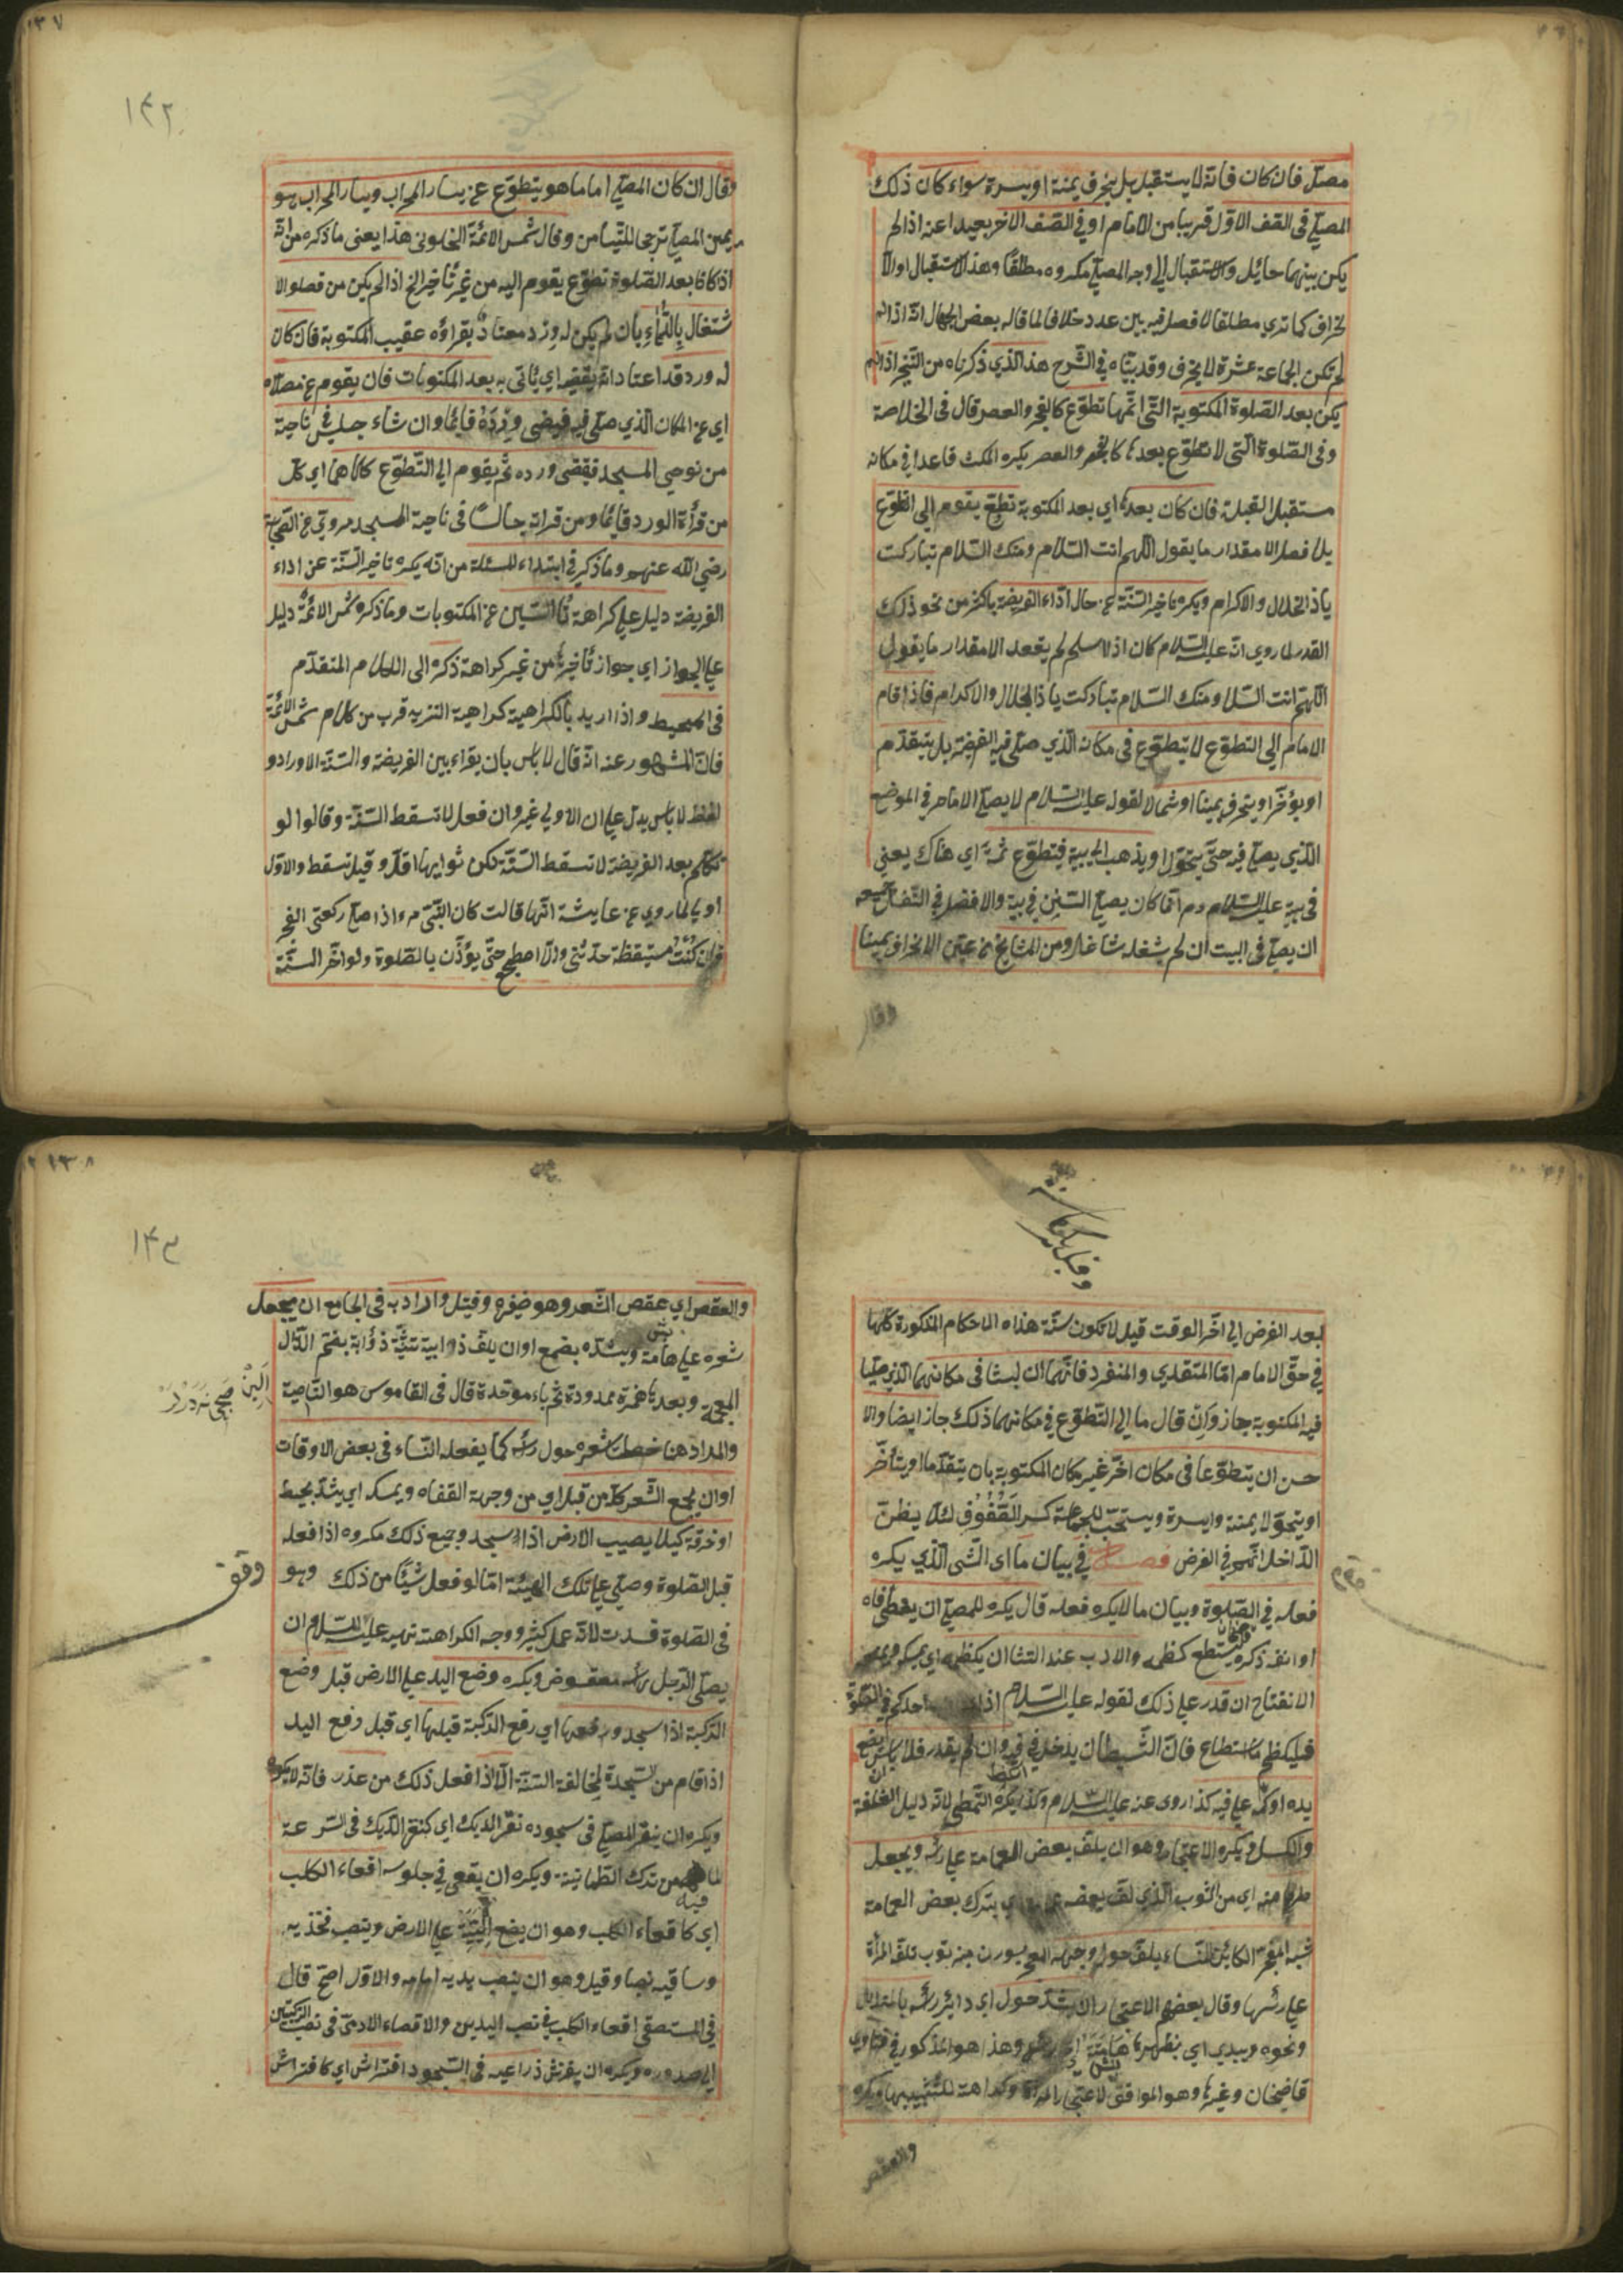 مصل فان كان فانه لا يستقبل بل ينحرف يمنة او يسرة سواء كان ذلك
المصلي في الصف الاول قريبا من الامام او في الصف الاخر بعيدا عنه اذا لم
يكن بينهما حائل والاستقبال الي وجه المصلي مكروه مطلقا وهذا الاستقبال او الا
نحراف كما تري مطلقا لا فصل فيه بين عدد خلافا لما قاله بعض الجهال انه اذا لم
لم تكن الجماعة عشرة لا ينحرف وقد بيناه في الشرح هذا الذي ذكرناه من التخير اذا لم
يكن بعد الصلوة المكتوبة التي اتمها تطوع كالفجر والعصر قال في الخلاصة
وفي الصلوة التي لا تطوع بعدها كالفجر والعصر يكره المكث قاعدا في مكانه
مستقبل القبلة فان كان بعدها اي بعد المكتوبة تطوع يقوم الي التطوع
بلا فصل الا مقدار ما يقول اللهم انت السلام ومنك السلام تباركت
ياذا الجلال والاكرام ويكره تاخير السنة عن حال اداء الفريضة باكثر من نحو ذلك
القدر لما روي انه عليه السلام كان اذا سلم لم يقعد الا مقدار ما يقول
اللهم انت السلا ومنك السلام تباركت ياذا الجلال والاكرام فاذا قام
الامام الي التطوع لا يتطوع في مكانه الذي صلي فيه الفريضة بل يتقدم
او يؤخر او ينحرف يمينا او شمالا لقوله عليه السلام لا يصلي الامام في الموضع
الذي يصلي فيه حتي يتحول او يذهب الي بيته فيتطوع ثمة اي هناك يعني
في بيته عليه السلام كان يصلي السنن في بيته والافضل في النفل جميعه
ان يصلي في البيت ان لم يشغله شاغل ومن المشايخ من عين الانحراف يمينا
وقال
وقال ان كان المصلي اماما هو يتطوع عن يسار المحراب ويسار المحراب هو
يمين المصلي ترجي للتيامن وقال شمس الائمة الحلوني هذا يعني ما ذكره من انه
اذا كانا بعد الصلوة تطوع يقوم اليه من غير تاخير الخ اذا لم يكن من قصلوا الا
شتغال بالدعاء بان لم يكن له ورد معتاد بقراؤه عقيب المكتوبة فان كان
له ورد قد اعتاد انه يقضه اي ياتي به بعد المكتوبات فان يقوم عن مصلاه
اي عن المكان الذي صلي فيه فيقضي ورده قايما وان شاء جلس في ناحية
من نوحي المسجد فيقضي ورده ثم يقوم الي التطوع كلاهما اي كل
من قرأة الورد قائما ومن قراته جالسا في ناحية المسجد مروي عن الصحابة
رضي الله عنهم وما ذكر في ابتداء المسئلة من انه يكره تاخير السنة عن اداء
الفريضة دليل علي كراهة السنن عن المكتوبات وما ذكره شمس الائمة دليل
علي الجواز اي جواز تاخيرها من غير كراهة ذكره الي الكلام المتقدم
في المحيط واذا اريد بالكراهية كراهية التنزيه قرب من كلام شمس الائمة
فان المشهور عنه انه قال لا باس بان يقراء بين الفريضة والسنة الاوراد و
لفظ لا باس يدل علي ان الاولي غيره وان فعل لا تسقط السنة وقالوا لو
تكلم بعد الفريضة لا تسقط السنة لكن ثوابها اقل وقيل تسقط والاول
اولي لما روي عن عايشة انها قالت كان النبي م اذا صلي ركعتي الفجر
فان كنت مستيقظة حدثني والا اضطجع حتي يؤذن بالصلوة ولو اخر السنة
١٤٢
بعد الفرض الي اخر الوقت قيل لا تكون سنة هذه الاحكام المذكورة كلها
في حق الامام اما المقتدي والمنفرد فانهما ان لبثا في مكانهما الذي صليا
فيه المكتوبة جاز وان قال ما الي التطوع في مكانهما ذلك جاز ايضا والا
حسن ان يتطوعا في مكان اخر غير مكان المكتوبة بان يتقدما او يتأخر
او يتحولا يمنة وايسرة ويستحب للجماعة كسر الصفوف لئلا يظن
الداخل انهم في الفرض فصل في بيان ما اي الشي الذي يكره
فعله في الصلوة وبيان ما لا يكره فعله قال يكره للمصلي ان يغطي فاه
او انفه ذكره يستطع كظمه والادب عند التثاؤب ان يكظمه اي يمسكه ويمنعه
الانفتاح ان قدر علي ذلك لقوله عليه السلام اذا احدكم في الصلوة
فليكظم ما استطاع فان الشيطان يدخل في فيه وان لم يقدر فلا باس ان يضع
يده او كمه علي فيه كذا روي عنه عليه السلام وكذا يكره التمطي لانه دليل الغفلة
والكسل ويكره الاعتجار وهو ان يلف بعض العمامة علي راسه ويجعل
طرفا منه اي من الثوب الذي لف بعضه يترك بعض العمامة
شبه المعجر الكائن للنساء يلف حول وجهه المعجر بوزن منبر ثوب تلفه المرأة
علي رئسها وقال بعضهم الاعتجار ان يشد حول اي دائير رئسه بالمنديل
ونحوه ويبدي اي يظهر هامته اي رئسه وهذا هو المذكور في فتاوي
قاضيخان وغيره وهو الموافق لاعتجار المرأة وكراهة للتشبيه بها ويكره
والعقص
والعقص اي عقص الشعر وهو ضفره وفتله واراد به في الجامع ان يجعل
شعره علي هامته ويشده بصمغ او ان يلف ذوابيته تثنية ذؤابة بضم الذال
المعجمة وبعدها همزة ممدودة ثم باء موحدة قال في القاموس هو الناصية
والمراد هنا خصلتا شعره حول رأسه كما يفعله النساء في بعض الاوقات
او ان يجمع الشعر كله من قبل اي من وجهة القفاه ويمسكه اي يشد بخيط
او خرقة كيلا يصيب الارض اذا سجد وجميع ذلك مكروه اذا فعله
قبل الصلوة وصلي علي تلك الهيئة اما لو فعل شيئا من ذلك وهو
في الصلوة فسدت لانه عمل كثير ووجه الكراهته نهيه عليه السلام ان
يصلي الرجل رأسه معقوض ويكره وضع اليد علي الارض قبل وضع
الركبة اذا سجد ورفعها اي رفع الركبة قبلها اي قبل رفع اليد
اذا قام من السجدة لمخالفة السنة الا اذا فعل ذلك من عذر فانه لا يكره
ويكره ان ينقر المصلي في سجوده نقر الديك اي كنقر الديك في السرعة
لما فيه من ترك الطمانينة ويكره ان يقعي في جلوسه اقعاء الكلب
اي كاقعاء الكلب وهو ان يضع اليتيه علي الارض وينصب فخذيه
وساقيه نصبا وقيل وهو ان ينصب يديه امامه والاول اصح قال
في المستصفي اقعاء الكلب في نصب اليدين والاقعاء الادمي في نصب الركبتين
الي صدره ويكره ان يفترش ذراعيه في السجود افتراش اي كافتراش
وقف
١٤٣